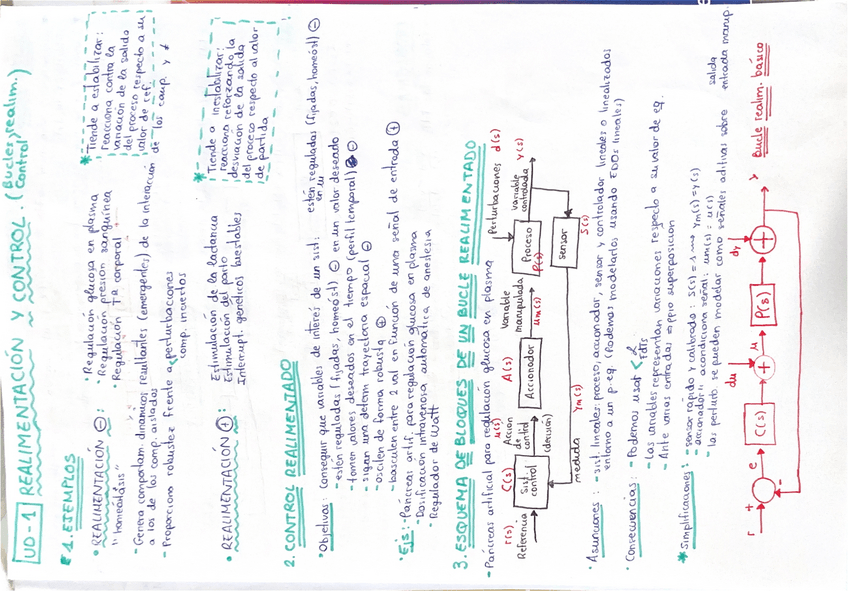 UD-1 REALIMENTACIÓN Y CONTROL. (Bucles, realim. Control)
1. EJEMPLOS
• REALIMENTACIÓN ⊖:
"homeostásis"
• Regulación glucosa en plasma
• Regulación presión sanguínea
• Regulación Tª corporal
* Tiende a estabilizar:
Reacciona contra la
variación de la salida
del proceso respecto a su
valor de ref.
- Genera comportam. dinámicos resultantes (emergentes) de la interacción de los comp. y ≠
a los de los comp. aislados
- Proporciona robustez frente a perturbaciones
comp. inciertos
• REALIMENTACIÓN ⊕:
Estimulación de la lactancia
Estimulación del parto
Interrupt. genéticos biestables
* Tiende a inestabilizar:
reacciona reforzando la
desviación de la salida
del proceso respecto al valor
de partida
2. CONTROL REALIMENTADO
• Objetivos: Conseguir que variables de interés de un sist: estén reguladas (fijadas, homeóst) ⊖
- estén reguladas (fijadas, homeóst) ⊖ en un valor deseado
- tomen valores deseados en el tiempo (perfil temporal) ⊖
- sigan una determ trayectoria espacial ⊖
- oscilen de forma robusta ⊕
- basculen entre 2 val en función de una señal de entrada ⊕
• Ejs: - Páncreas artif. para regulación glucosa en plasma
- Dosificación intravenosa automática de anestesia
- Regulador de Watt
3. ESQUEMA DE BLOQUES DE UN BUCLE REALIMENTADO
- Páncreas artificial para regulación glucosa en plasma
r(s)
Referencia
C(s)
Sist
control
u(s)
Accion
de contrl
(decisión)
A(s)
Accionador
Variable
manipulada
um(s)
Perturbaciones d(s)
Proceso
P(s)
variable
controlada
y(s)
sensor
S(s)
medida
ym(s)
• Asunciones: - sist. lineales: proceso, accionador, sensor y controlador lineales o linealizados
entorno a un p. eq. (Podemos modelarlos usando EDOs lineales)
• Consecuencias: - Podemos usar
FdTs
- Las variables representan variaciones respecto a su valor de eq.
- Ante varias entradas → ppio superposicion
* Simplificaciones: - sensor rápido y calibrado: S(s) = 1 → ym(s) = y(s)
- accionador ii acondiciona señal: um(s) = u(s)
- las perturb se pueden modelar como señales aditivas sobre salida
entrada manip.
r
+
-
e
C(s)
du
u
P(s)
dy
y
Bucle realim. básico